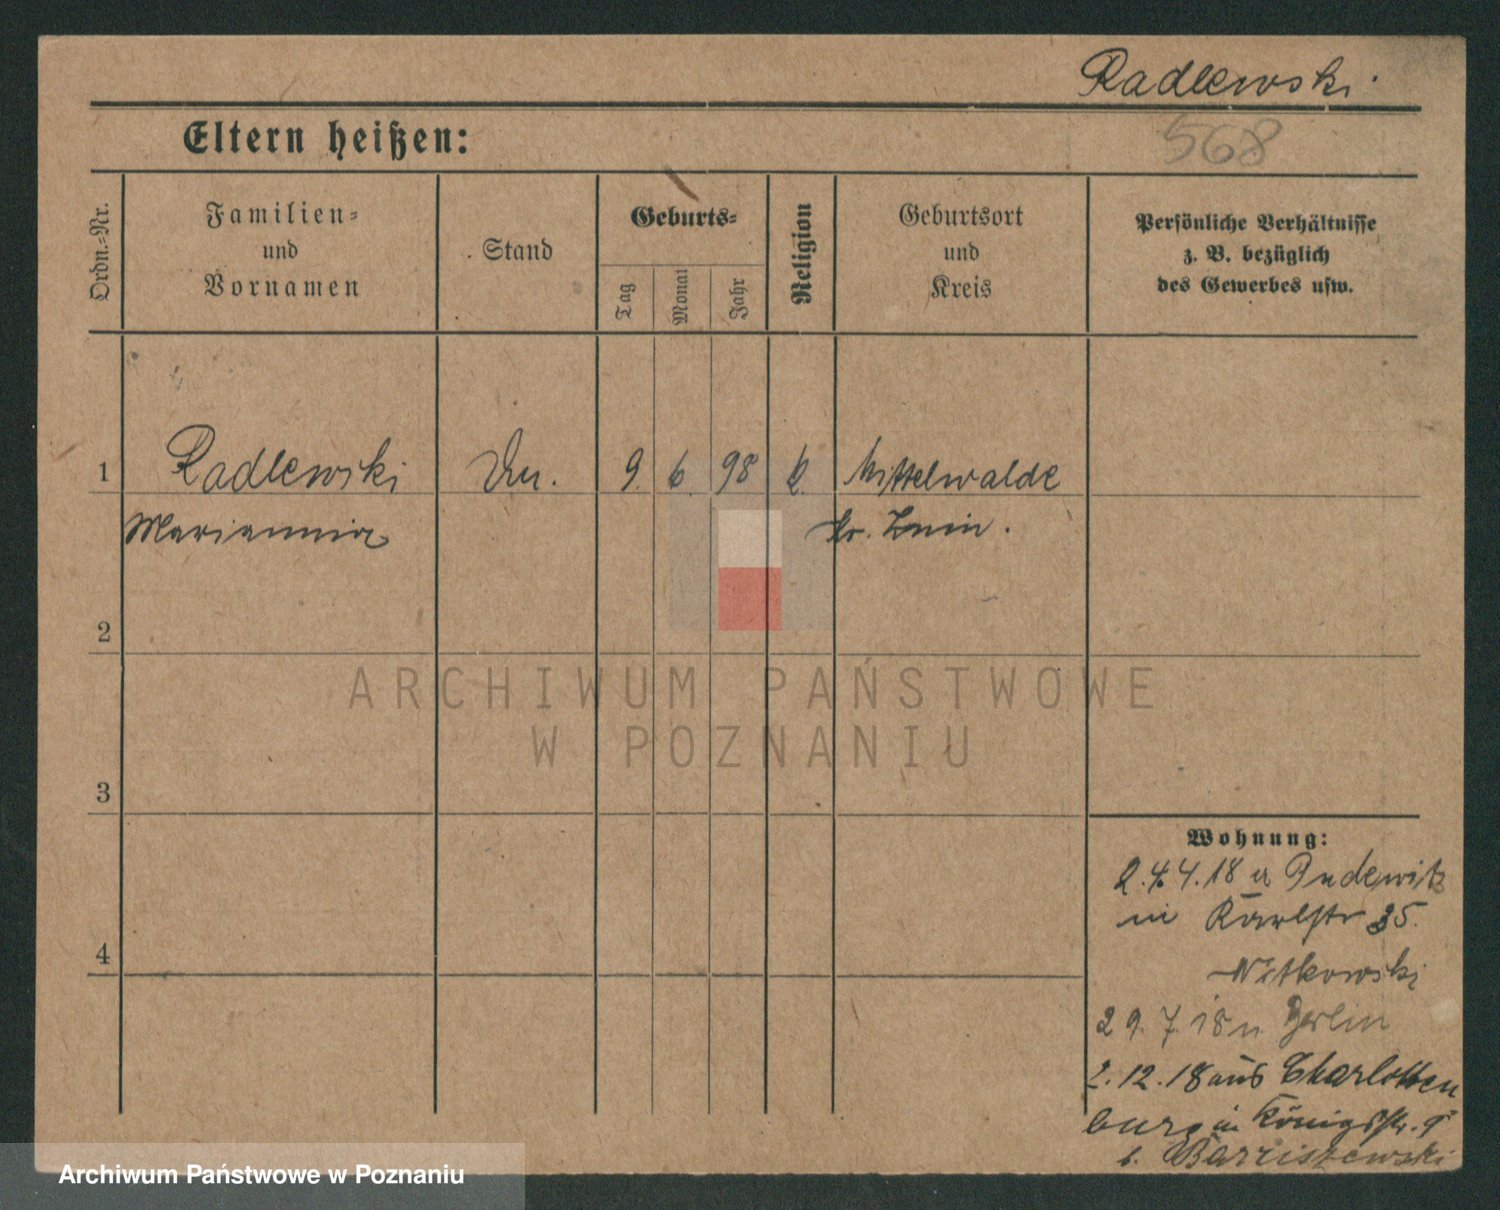 Radlewski.
Eltern heißen:
568
Ordn.=Nr.
Familien=
und
Vornamen
Stand
Geburts=
Tag
Monat
Jahr
Religion
Geburtsort
und
Kreis
Persönliche Verhältnisse
z. B. bezüglich
des Gewerbes usw.
1 Radlewski 9. 6. 98 k. Mittelwalde
Marianna Kr. Znin.
2
ARCHIWUM PAŃSTWOWE
W POZNANIU
3
Wohnung:
4.18 a Pudewitz
in Karlstr 35.
4
Witkowski
29.7.18 n Berlin
2.12.18 aus Charlotten
burg in Königstr. 9
b. Barriszewski
Archiwum Państwowe w Poznaniu